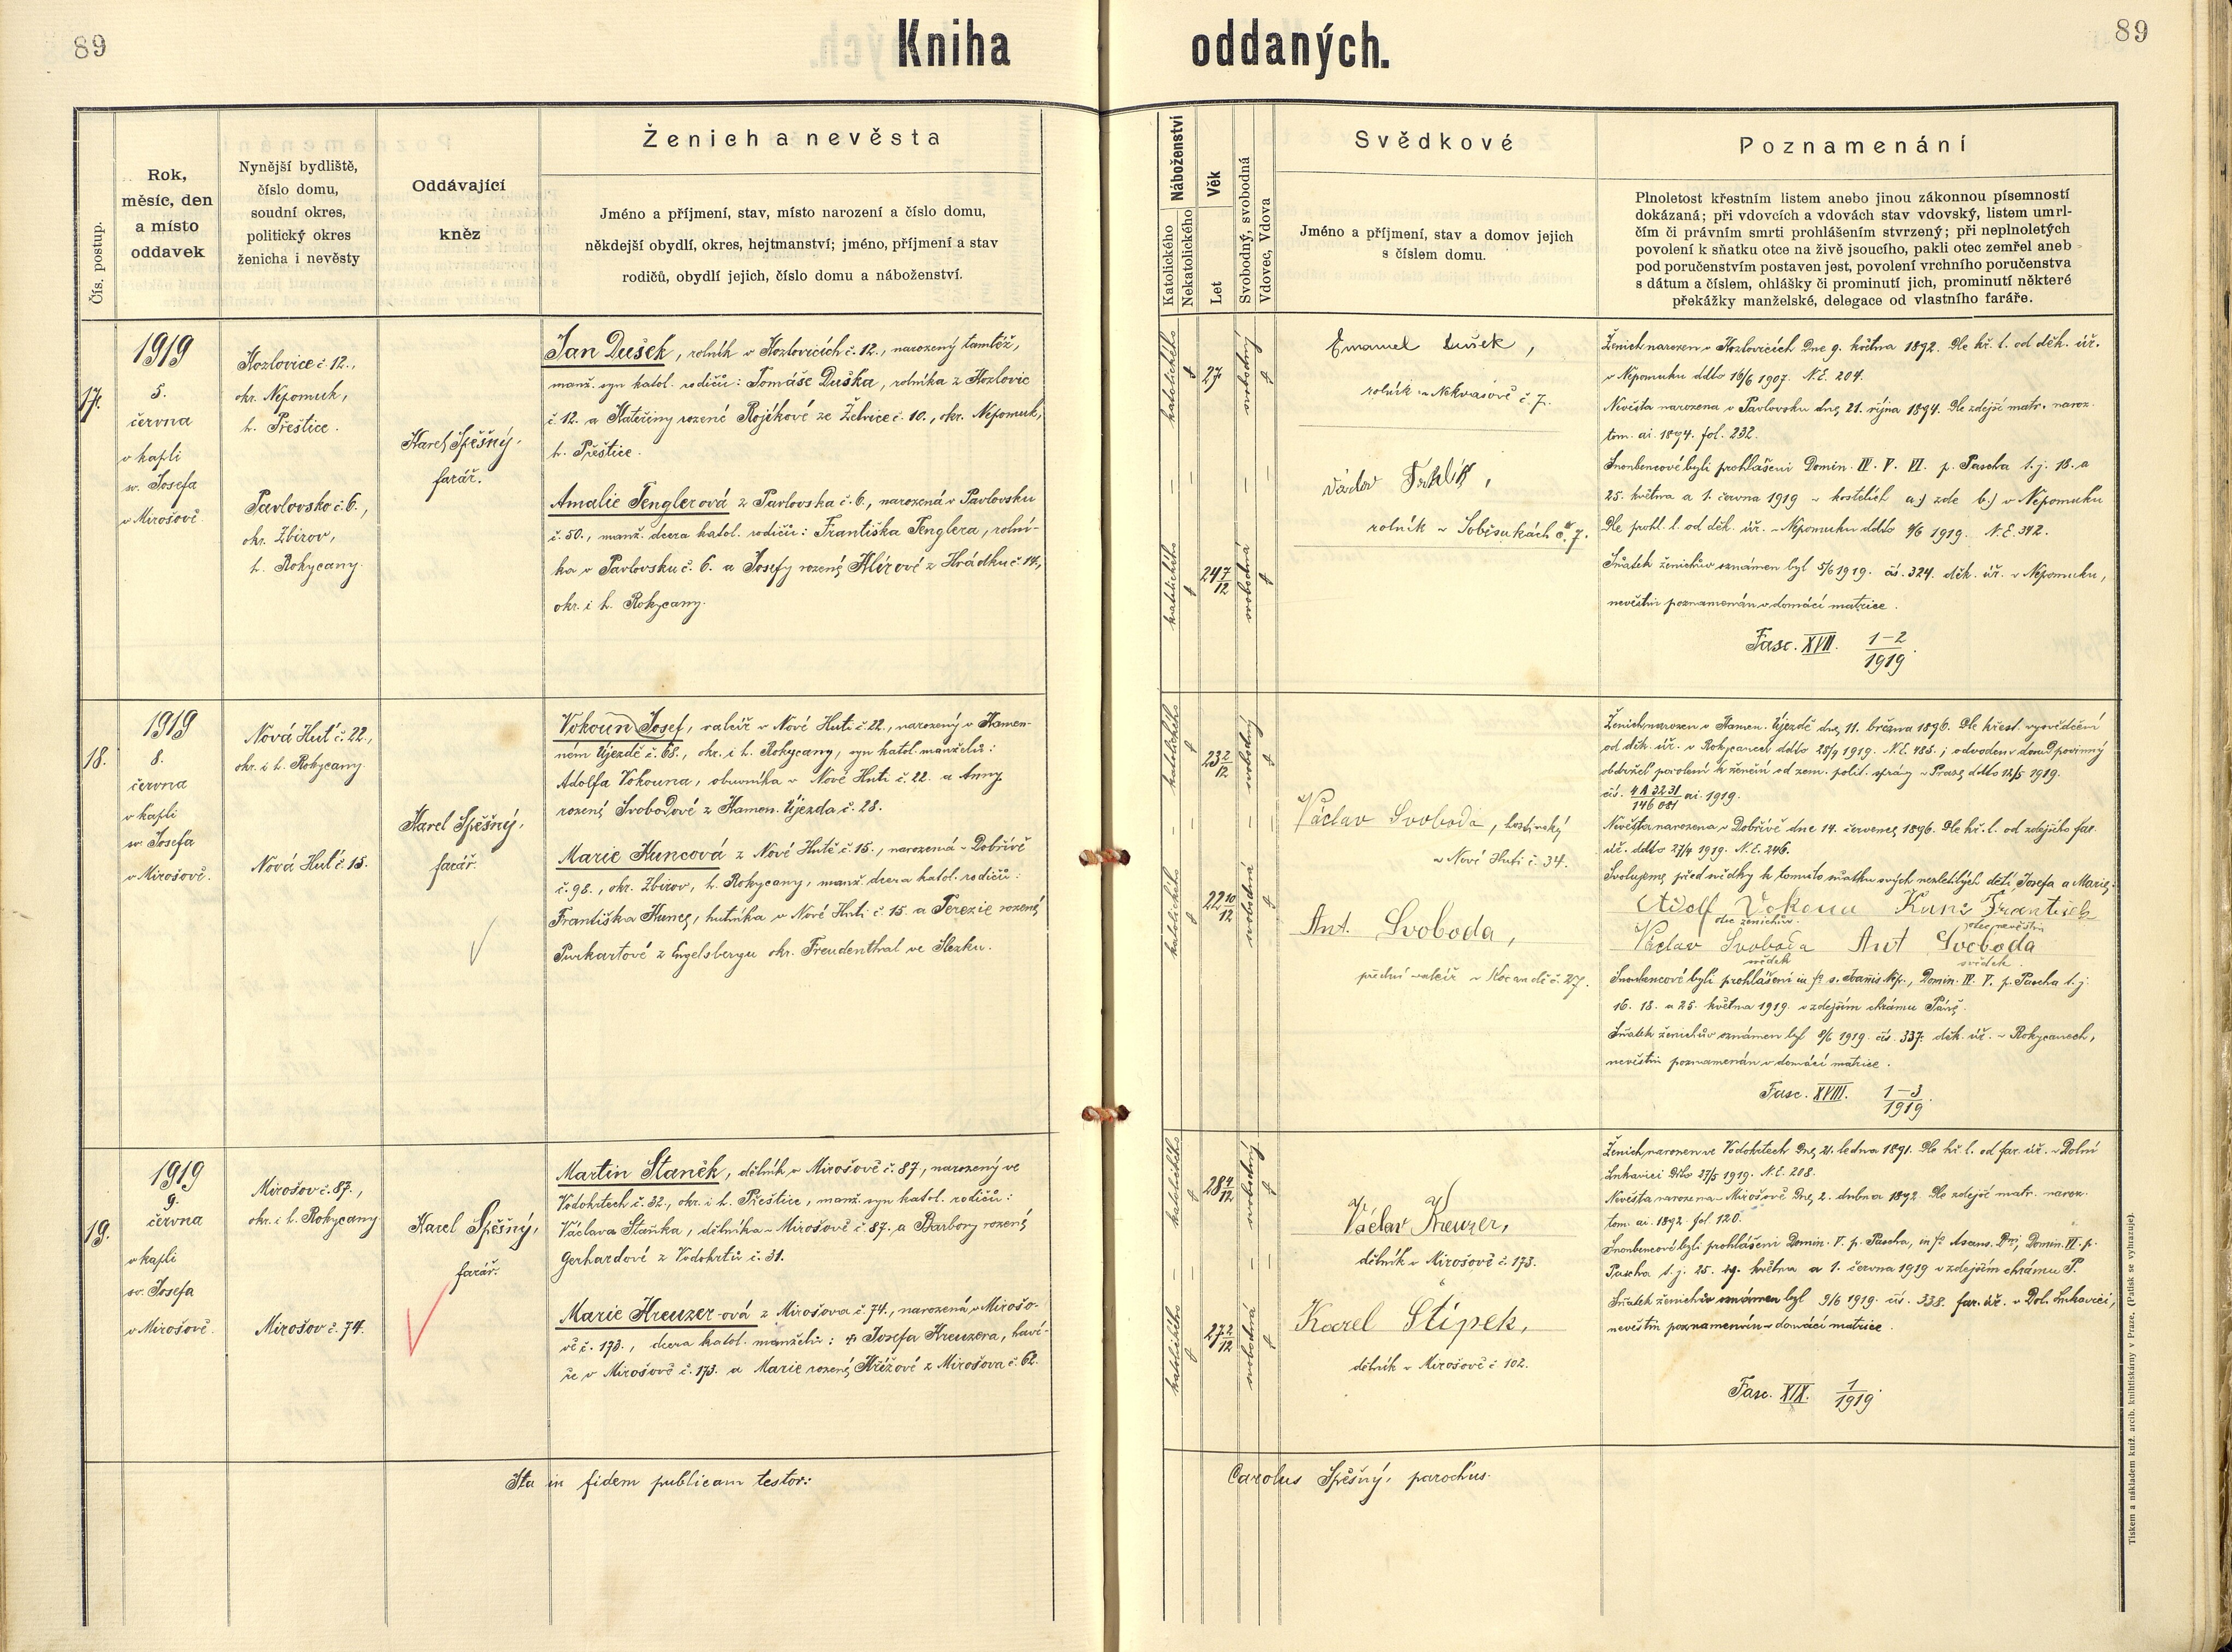 89
Kniha
oddaných.
89
Čís. postup.
Rok,
měsíc, den
a místo
oddavek
Nynější bydliště,
číslo domu,
soudní okres,
politický okres
ženicha i nevěsty
Oddávající
kněz
Ženich a nevěsta
Jméno a příjmení, stav, místo narození a číslo domu,
někdejší obydlí, okres, hejtmanství; jméno, příjmení a stav
rodičů, obydlí jejich, číslo domu a náboženství.
Náboženství
Katolického
Nekatolického
Věk
Let
Svobodný, svobodná
Vdovec, Vdova
Svědkové
Jméno a příjmení, stav a domov jejich
s číslem domu.
Poznamenání
Plnoletost křestním listem anebo jinou zákonnou písemností
dokázaná; při vdovcích a vdovách stav vdovský, listem umrl-
čím či právním smrti prohlášením stvrzený; při neplnoletých
povolení k sňatku otce na živě jsoucího, pakli otec zemřel aneb
pod poručenstvím postaven jest, povolení vrchního poručenstva
s dátum a číslem, ohlášky či prominutí jich, prominutí některé
překážky manželské, delegace od vlastního faráře.
17.
1919
5.
června
v kapli
sv. Josefa
v Mirošově.
Kozlovice č. 12.,
okr. Nepomuk,
h. Přeštice.
Pavlovsko č. 6.,
okr. Zbirov,
h. Rokycany.
Karel Spěšný,
farář.
Jan Dušek, rolník v Kozlovicích č. 12., narozený tamtéž,
manž. syn katol. rodičů: Tomáše Duška, rolníka z Kozlovic
č. 12. a Kateřiny rozené Rojíkové ze Želvice č. 10., okr. Nepomuk,
h. Přeštice.
Amalie Tenglerová z Pavlovska č. 6., narozená v Pavlovsku
č. 50., manž. dcera katol. rodičů: Františka Tenglera, rolní-
ka v Pavlovsku č. 6. a Josefy rozené Klírové z Hrádku č. 14.,
okr. i h. Rokycany.
katolického
27
svobodný
katolického
24 7/12
svobodná
Emanuel Dušek,
rolník v Nekvasově č. 7.
Václav
rolník v Soběsukách č. 7.
Ženich narozen v Kozlovicích dne 9. května 1892. Dle kř. l. od děk. úř.
v Nepomuku ddto 16/6 1907. N.E. 204.
Nevěsta narozena v Pavlovsku dne 21. října 1894. Dle zdejší matr. naroz.
tom. ai. 1894. fol. 232.
Snoubencové byli prohlášeni Domin. IV. V. VI. p. Pascha t. j. 18. a
25. května a 1. června 1919 v kostelích a.) zde b.) v Nepomuku
Dle prohl. l. od děk. úř. v Nepomuku ddto 4/6 1919. N.E. 342.
Sňatek ženichův oznámen byl 5/6 1919. čís. 324. děk. úř. v Nepomuku,
nevěstin poznamenán v domácí matrice.
Fasc. XVII. 1-2/1919.
18.
1919
8.
června
v kapli
sv. Josefa
v Mirošově.
Nová Huť č. 22.,
okr. i h. Rokycany.
Nová Huť č. 15.
Karel Spěšný,
farář.
Vokoun Josef, valcíř v Nové Huti č. 22., narozený v Kamen-
ném Újezdě č. 68., okr. i h. Rokycany, syn katol. manželů:
Adolfa Vokouna, obuvníka v Nové Huti č. 22. a Anny
rozené Svobodové z Kamen. Újezda č. 28.
Marie Kuncová z Nové Hutě č. 15., narozená v Dobřívě
č. 98., okr. Zbirov, h. Rokycany, manž. dcera katol. rodičů:
Františka Kunce, hutníka v Nové Huti č. 15. a Terezie rozené
Purkartové z Engelsbergu okr. Freudenthal ve Slezku.
katolického
23 2/12
svobodný
katolického
22 10/12
svobodná
Václav Svoboda, hostinský
v Nové Huti č. 34.
Ant. Svoboda,
přední valcíř v Kocandě č. 27.
Ženich narozen v Kamen. Újezdě dne 11. března 1896. Dle křest. vysvědčení
od děk. úř. v Rokycanech ddto 28/4 1919. N.E. 485.; odvoden v domob. povinný
obdržel povolení k ženění od zem. polit. správy v Praze ddto 12/5 1919.
čís. 4 A 3231/146 081 ai. 1919.
Nevěsta narozena v Dobřívě dne 14. července 1896. Dle kř. l. od zdejšího far.
úř. ddto 27/4 1919. N.E. 246.
Svolujeme před svědky k tomuto sňatku svých nezletilých dětí Josefa a Marie:
Adolf Vokoun Kunc František
otec ženichův. otec nevěstin
Václav Svoboda Ant Svoboda
svědek svědek.
Snoubencové byli prohlášeni in fo s. Joannis Nep., Domin. IV. V. p. Pascha t. j.
16. 18. a 25. května 1919. v zdejším chrámu Páně.
Sňatek ženichův oznámen byl 8/6 1919. čís. 337. děk. úř. v Rokycanech,
nevěstin poznamenán v domácí matrice.
Fasc. XVIII. 1-3/1919.
19.
1919
9.
června
v kapli
sv. Josefa
v Mirošově.
Mirošov č. 87.,
okr. i h. Rokycany
Mirošov č. 74.
Karel Spěšný,
farář.
Martin Staněk, dělník v Mirošově č. 87., narozený ve
Vodokrtech č. 32., okr. i h. Přeštice, manž. syn katol. rodičů:
Václava Staňka, dělníka v Mirošově č. 87. a Barbory rozené
Gerhardové z Vodokrtů č. 31.
Marie Kreuzer-ová z Mirošova č. 74., narozená v Mirošo-
vě č. 173., dcera katol. manželů: † Josefa Kreuzera, haví-
ře v Mirošově č. 173. a Marie rozené Křížové z Mirošova č. 62.
katolického
28 4/12
svobodný
katolického
27 2/12
svobodná
Václav Kreuzer,
dělník v Mirošově č. 173.
Karel Stípek,
dělník v Mirošově č. 102.
Ženich narozen ve Vodokrtech dne 21. ledna 1891. Dle kř. l. od far. úř. v Dolní
Lukavici ddto 27/5 1919. N.E. 208.
Nevěsta narozena v Mirošově dne 2. dubna 1892. Dle zdejší matr. naroz.
tom. ai. 1892 fol. 120.
Snoubencové byli prohlášeni Domin. V. p. Pascha, in fo Ascens. Dni, Domin. VI. p.
Pascha t. j. 25. 29. května a 1. června 1919 v zdejším chrámu P.
Sňatek ženichův oznámen byl 9/6 1919. čís. 338. far. úř. v Dol. Lukavici,
nevěstin poznamenán v domácí matrice.
Fasc. XIX. 1/1919.
Ita in fidem publicam testor:
Carolus Spěšný, parochus.
Tiskem a nákladem kníž. arcib. knihtiskárny v Praze. (Patisk se vyhrazuje).